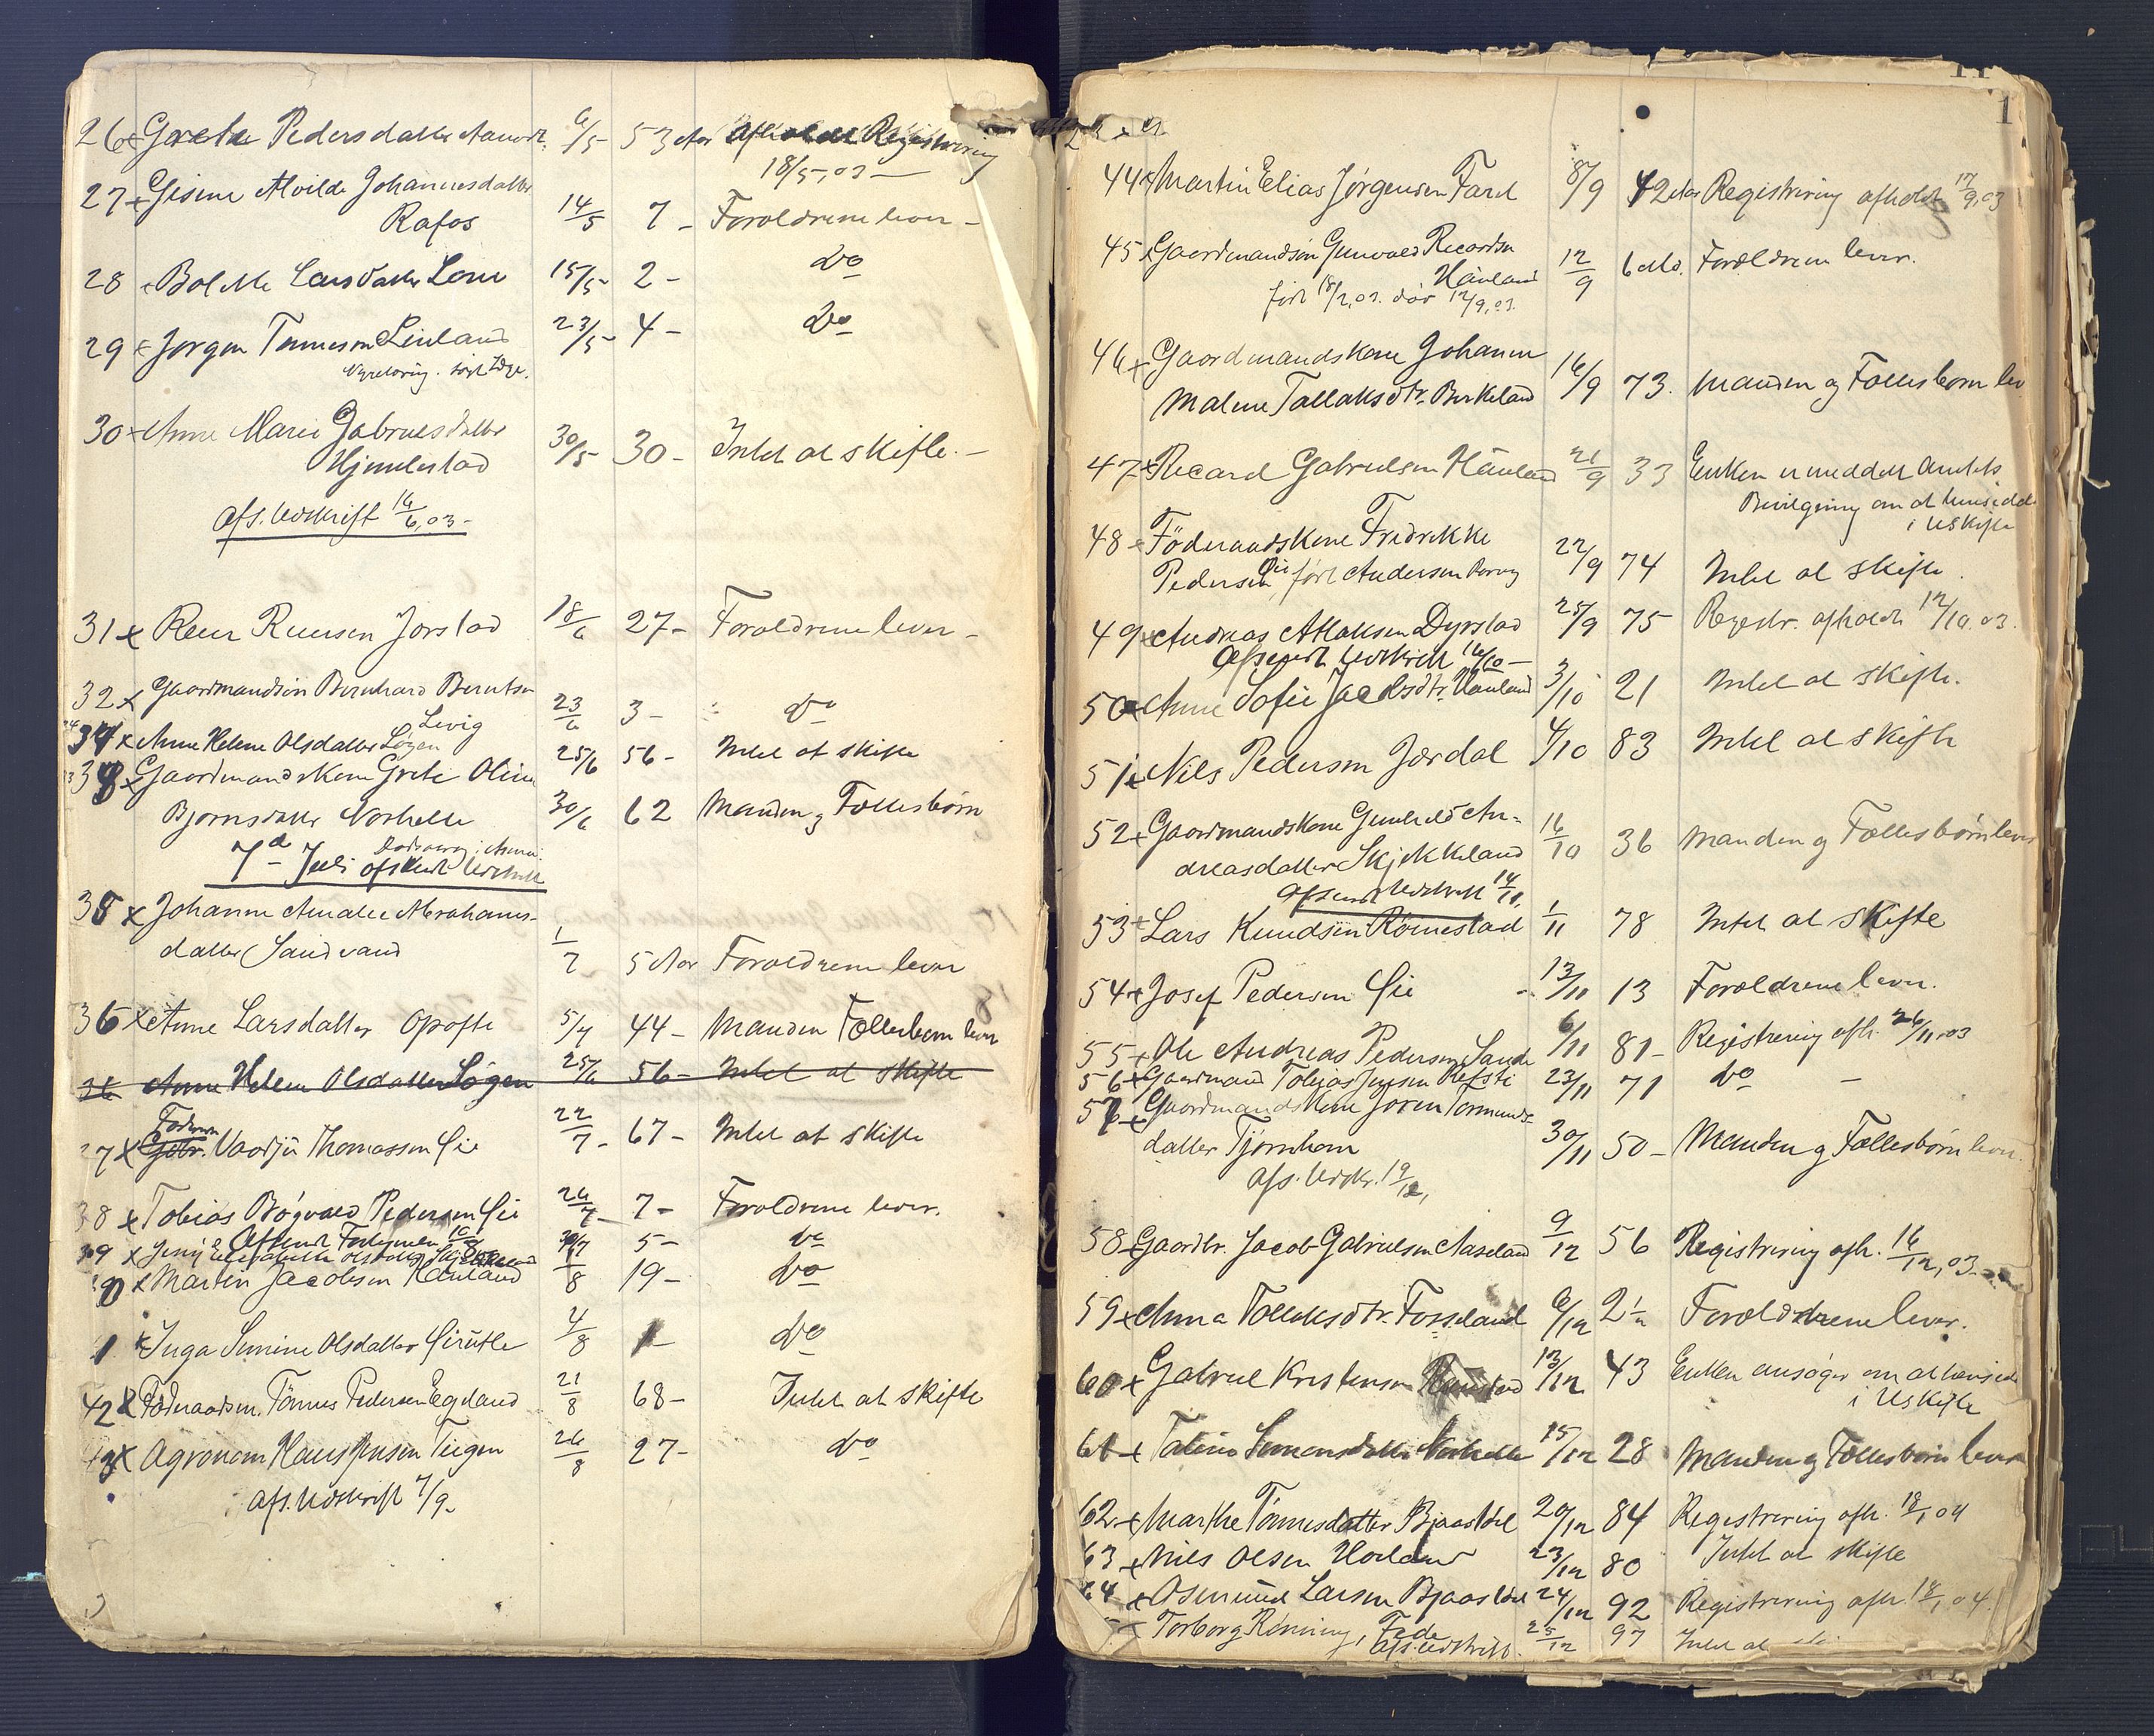 26 x Grete Pedersdatter 6/5 53 Aar Afholdt Registrering
18/5,03 —
27 x Gisine Alvilde Johannesdatter
Rafos 14/5 7 - Forældrene lever -
28 x Bolette Larsdatter Lone 15/5 2 - do
29 x Jørgen Tønnesen Linland 23/5 4 - do
30 x Anne Marie Gabrielsdatter
Hjemlestad 30/5 30 - Intet at skifte. -
Afs. Udskrift 16/6,03 -
31 x Reier Reiersen Jørstad 18/6 27 - Forældrene lever -
32 x Gaardmandsøn Bernhard Berntsen
Løvig 23/6 3 - do
34 x Anne Helene Olsdatter Løgen 25/6 56 - Intet at skifte
33 x Gaardmandskone Grete Oline
Bjørnsdatter Norhelle 30/6 62 Manden og Fællesbørn
7de Juli afsendt Udskrift
35 x Johanne Amalie Abrahams-
datter Sandvand 1/7 5 Aar Forældrene lever
36 x Anne Larsdatter Opofte 5/7 44 - Manden Fællesbørn lever
36 Anne Helene Olsdatter Løgen 25/6 56 - Intet at skifte
37 x Gbr. Vaardju Thomassen Øie 22/7 - 67 - Intet at skifte
38 x Tobias Bøgvald Pedersen Øie 26/7 - 7 - Forældrene lever.
39 x Jenny Elisabeth Olsdatter 5 - do
40 x Martin Jacobsen Hauland 1/8 19 - do
41 x Inga Simine Olsdatter 4/8 1 - do
42 x Føderaadsm. Tønnes Pedersen Egeland 21/8 68 - Intet at skifte
43 x Agronom Hans Jensen Tiegen 26/8 27 - do
Afs. Udskrift 7/9 -
44 x Martin Elias Jørgensen Fard 8/9 42 Aar Registrering afholdt 17/9,03
45 x Gaardmandsøn Gunvald Recardsen
Hauland 12/9 6 Md. Forældrene lever.
født 18/2,03. død 12/9,03.
46 x Gaardmandskone Johanne
Malene Tallaksdtr. Birkeland 16/9 73. Manden og Fællesbørn lev
47 x Recard Gabrielsen Hauland 21/9 33 Enken er meddelt Amtets
Bevilgning om at hensidde
i Uskifte
48 x Føderaadskone Fredrikke
Pedersen Øie, født Andersen 22/9 74 Intet at skifte.
49 x Andreas Atlaksen Dyrstad 25/9 75 Registr. afholdt 12/10.03.
Afsendt Udskrift 16/10 -
50 x Anne Sofie Jacobsdtr. Hauland 3/10 21 Intet at skifte.
51 x Nils Pedersen Jerdal 4/10 83 Intet at skifte
52 x Gaardmandskone Gunhild An-
dreasdatter Skjekkeland 16/10 36 Manden og Fællesbørn lever
Afsendt Udskrift
53 x Lars Knudsen Rømestad 1/11 78 Intet at skifte
54 x Josef Pedersen Øie 13/11 13 Forældrene lever.
55 x Ole Andreas Pedersen Sande 6/11 81 - Registrering afh. 26/11,03
56 x Gaardmand Tobias Jensen Refsti 23/11 71 do —
57 x Gaardmandskone Joren Tormunds-
datter Tjørnhom 30/11 50 - Manden og Fællesbørn lever.
Afs. Udskr. 19/12,
58 x Gaardbr. Jacob Gabrielsen Aaseland 9/12 56 Registrering afh. 16/12,03.
59 x Anna Tollaksdtr. Fosseland 6/12 2 1/2 Forældrene lever.
60 x Gabriel Kristensen 13/12 43 Enken ansøger om at hensidde
i Uskifte
61 x Taline Simonsdatter Norhelle 15/12 28 Manden og Fællesbørn lever
62 x Marthe Tønnesdatter Bjaastøl 20/12 84 Registrering afh. 18/1,04
63 x Nils Olsen Hovland 23/12 80 Intet at skifte
64 x Osmund Larsen Bjaastøl 24/12 92 Registrering afh. 18/1,04.
Torborg Rønning, Fede 25/12 97 Intet at
Afs. Udskrift.